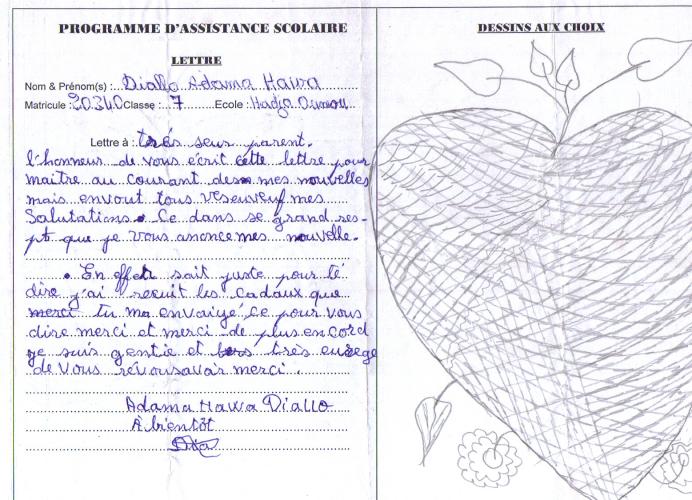 PROGRAMME D'ASSISTANCE SCOLAIRE
LETTRE
Nom & Prénom(s) : Diallo Adama Hawa
Matricule : 20340 Classe : 7 Ecole : Hadja Oumou
Lettre à : trés seur parent.
l'honneur de vous écrit cette lettre pour
maitre au courant des mes nouvelles
mais envout tous reseuveuf mes
Salutations. Ce dans se grand res-
pt que je vous anonce mes nouvelle.
En effet sait juste pour té
dire j'ai recuit les Cadaux que
merci tu ma envaiyé ce pour vous
dire merci et merci de plus en cord
je suis gentie et très
de vous révousavair merci.
Adama Hawa Diallo
À bientôt
DESSINS AUX CHOIX